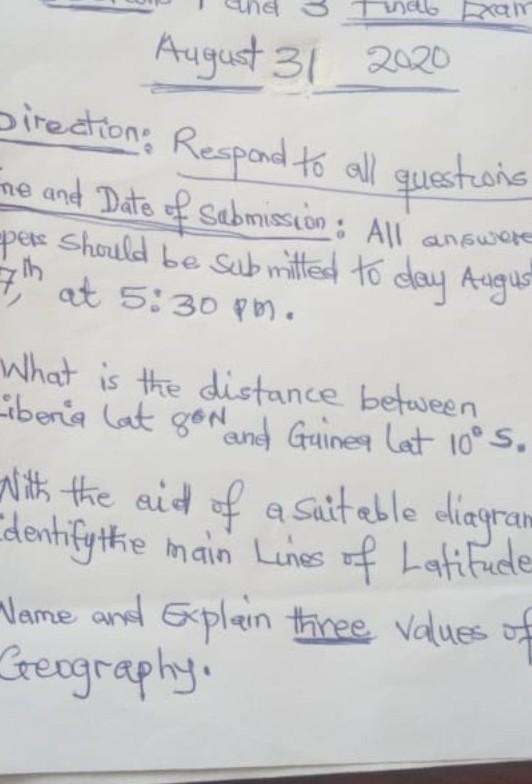 1 and 3 Finals Exam
August 31 2020
Direction: Respond to all questions
ne and Date of Submission: All answere
pers should be submitted to day Augus
7th, at 5:30 pm.
What is the distance between
Liberia Lat 8°N and Guinea Lat 10° S.
With the aid of a suitable diagram
identify the main Lines of Latitude
Name and Explain three values of
Geography.